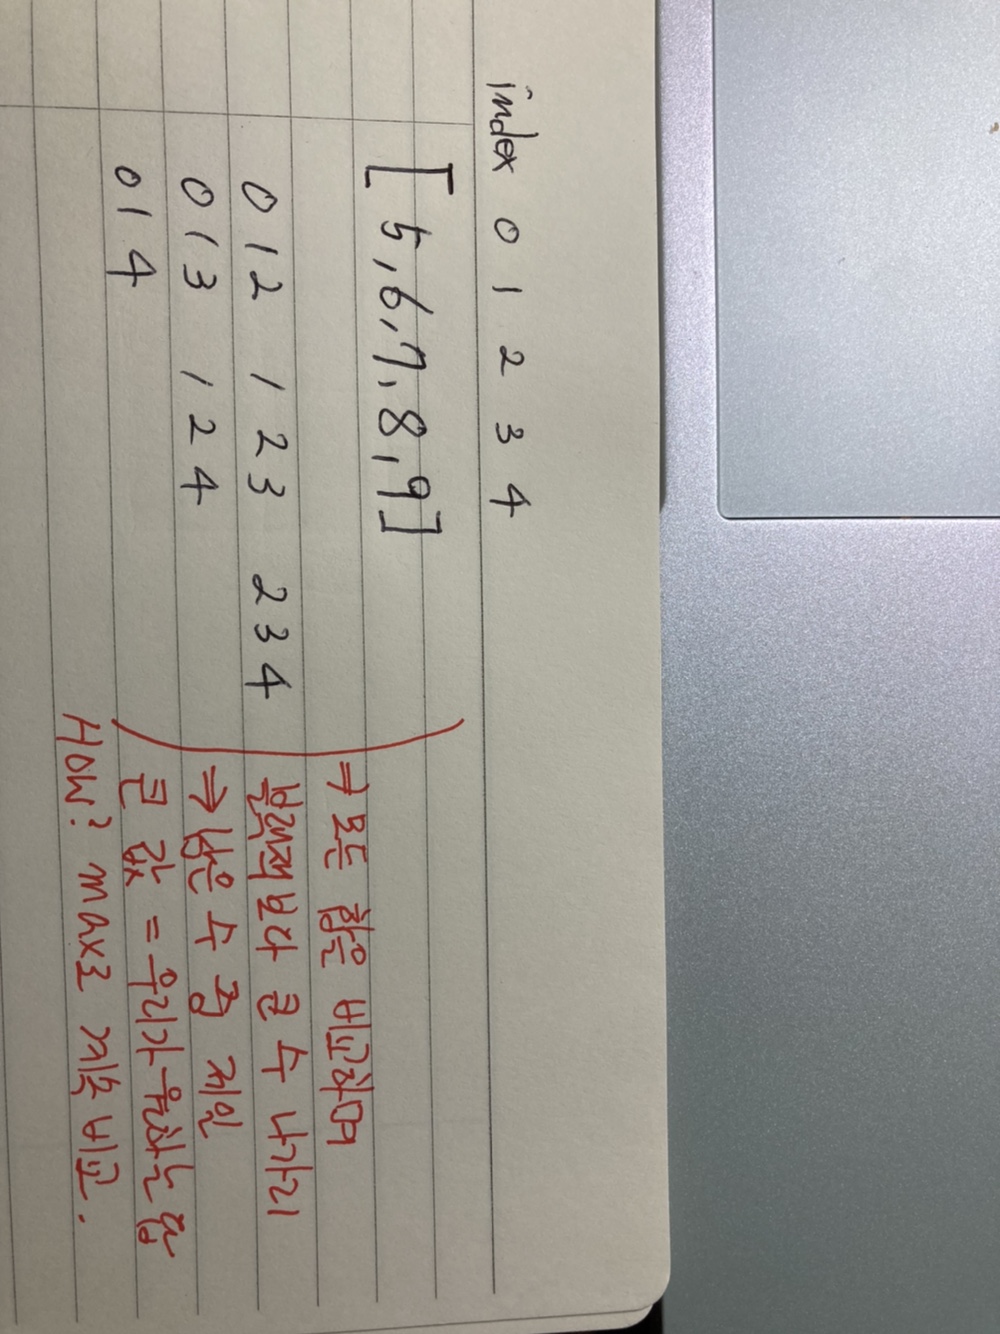 index 0 1 2 3 4
[ 5, 6, 7, 8, 9 ]
0 1 2 1 2 3 2 3 4
0 1 3 1 2 4
0 1 4
⇒ 모든 합을 비교하며
블랙잭보다 큰 수 나가리
⇒ 남은 수 중 제일
큰 값 = 우리가 원하는 답
How? max로 계속 비교.